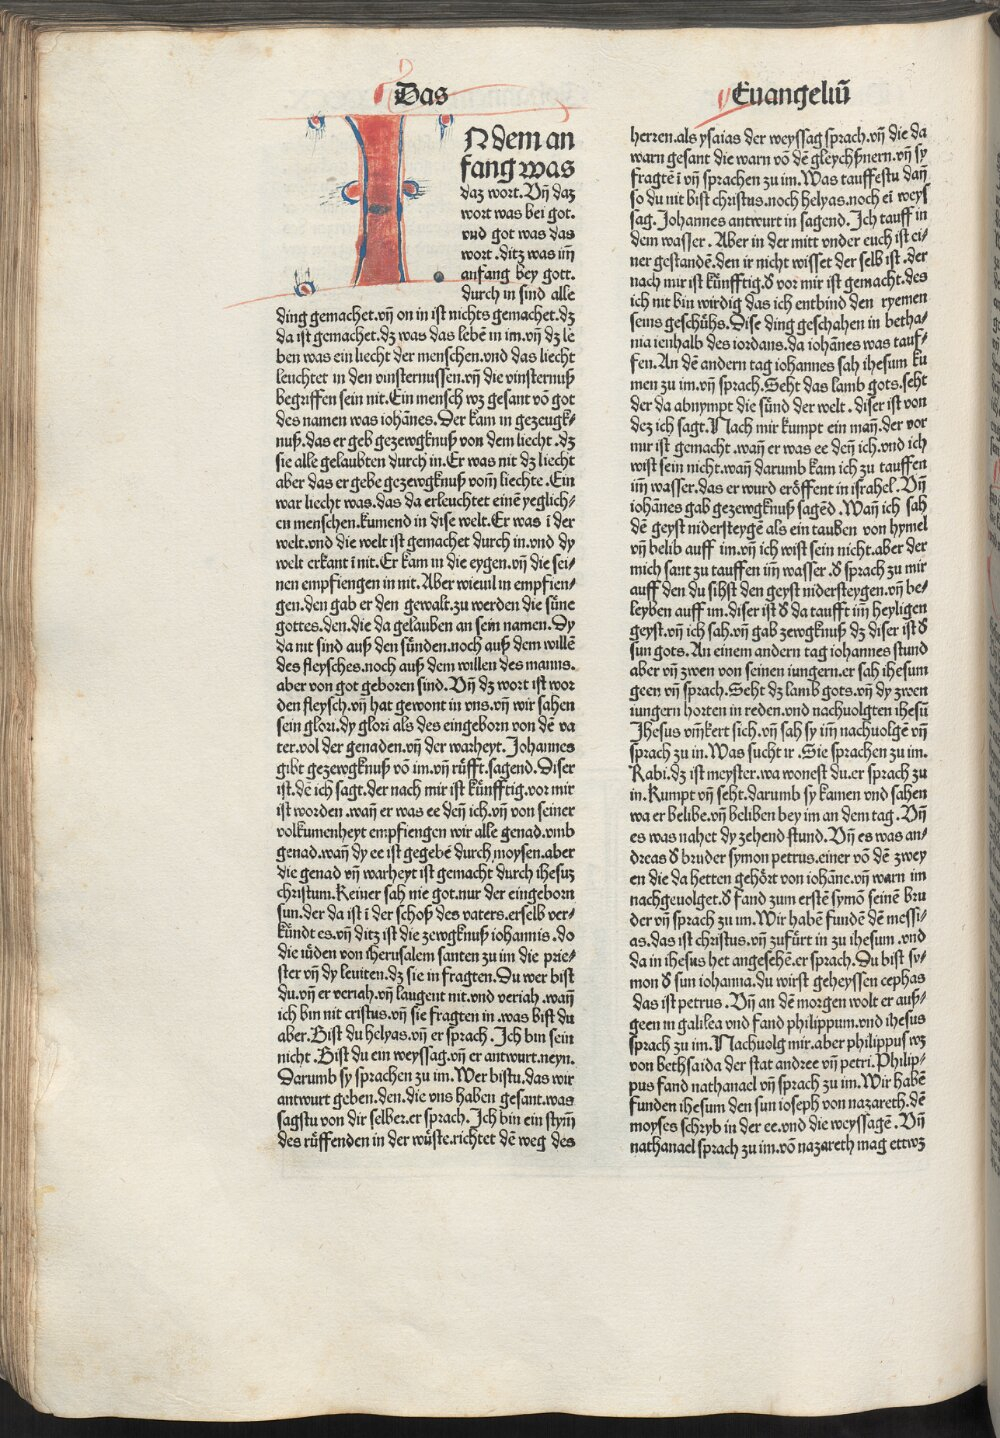 Das
Euangeliū
IN dem an
fang was
daz wort. Vñ daz
wort was bei got.
vnd got was das
wort .ditz was im̄
anfang bey gott.
durch in sind alle
ding gemachet.vñ on in ist nichts gemachet.dz
da ist gemachet.dz was das lebē in im.vñ dz le
ben was ein liecht der menschen.vnd das liecht
leuchtet in den vinsternussen.vñ die vinsternuß
begriffen sein nit.Ein mensch wz gesant vō got
des namen was iohānes.Der kam in gezeugk⸗
nuß.das er geb gezewgknuß von dem liecht .dz
sie alle gelaubten durch in.Er was nit dz liecht
aber das er gebe gezewgknuß vom̄ liechte .Ein
war liecht was.das da erleuchtet einē yeglich⸗
en menschen.kumend in dise welt.Er was ī der
welt.vnd die welt ist gemachet durch in.vnd dy
welt erkant ī nit.Er kam in die eygen.vñ die sei⸗
nen empfiengen in nit.Aber wieuil in empfien⸗
gen.den gab er den gewalt.zu werden die sūne
gottes.den.die da gelauben an sein namen.Dy
da nit sind auß den sünden.noch auß dem willē
des fleysches.noch auß dem willen des manns.
aber von got geboren sind.Vñ dz wort ist wor
den fleysch.vñ hat gewont in vns.vñ wir sahen
sein glori.dy glori als des eingeborn von dē va
ter.vol der genaden.vñ der warheyt.Johannes
gibt gezewgknuß vō im.vñ rüfft.sagend.Diser
ist.dē ich sagt.der nach mir ist künfftig.vor mir
ist worden .wañ er was ee deñ ich.vñ von seiner
volkumenheyt empfiengen wir alle genad.vmb
genad.wañ dy ee ist gegebē durch moysen.aber
die genad vñ warheyt ist gemacht durch ihesuz
christum.Keiner sah nie got.nur der eingeborn
sun.der da ist ī der schoß des vaters.erselb ver⸗
kündt es.vñ ditz ist die zewgknuß iohannis .do
die iüden von iherusalem santen zu im die prie⸗
ster vñ dy leuiten.dz sie in fragten.Du wer bist
du.vñ er veriah.vñ laugent nit.vnd veriah .wañ
ich bin nit cristus.vñ sie fragten in .was bist du
aber.Bist du helyas.vñ er sprach .Ich bin sein
nicht .Bist du ein weyssag.vñ er antwurt.neyn.
Darumb sy sprachen zu im.Wer bistu.das wir
antwurt geben.den.die vns haben gesant.was
sagstu von dir selber.er sprach. Ich bin ein stym̄
des rüffenden in der wüste.richtet dē weg des
herren.als ysaias der weyssag sprach.vñ die da
warn gesant die warn vō dē gleychßnern.vñ sy
fragtē ī vñ sprachen zu im.Was tauffestu dañ
so du nit bist christus.noch helyas.noch ei weys
sag. Johannes antwurt in sagend.Ich tauff in
dem wasser . Aber in der mitt vnder euch ist ei⸗
ner gestandē.den ir nicht wisset der selb ist .der
nach mir ist künfftig.đ vor mir ist gemacht.des
ich nit bin wirdig das ich entbind den ryemen
seins geschühs.Dise ding geschahen in betha⸗
nia ienhalb des iordans.da iohānes was tauf⸗
fen.An dē andern tag iohannes sah ihesum ku
men zu im.vñ sprach.Seht das lamb gots.seht
der da abnympt die sünd der welt . diser ist von
dez ich sagt.Nach mir kumpt ein mañ.der vor
mir ist gemacht .wañ er was ee deñ ich.vnd ich
wist sein nicht.wañ darumb kam ich zu tauffen
im̄ wasser.das er wurd eröffent in israhel. Vñ
iohānes gab gezewgknuß sagēd .Wañ ich sah
dē geyst nidersteygē als ein tauben von hymel
vñ belib auff im.vñ ich wist sein nicht.aber der
mich sant zu tauffen im̄ wasser .đ sprach zu mir
auff den du sihst den geyst nidersteygen.vñ be⸗
leyben auff im.diser ist đ da taufft im̄ heyligen
geyst.vñ ich sah.vñ gab zewgknuß dz diser ist đ
sun gots.An einem andern tag iohannes stund
aber vñ zwen von seinen iungern.er sah ihesum
geen vñ sprach.Seht dz lamb gots.vñ dy zwen
iungern horten in reden.vnd nachuolgten ihesū
Ihesus vm̄kert sich.vñ sah sy im̄ nachuolgē vñ
sprach zu in.Was sucht ir .Sie sprachen zu im.
Rabi.dz ist meyster.wa wonest du.er sprach zu
in.Kumpt vñ seht.darumb sy kamen vnd sahen
wa er belibe.vñ beliben bey im an dem tag .Vñ
es was nahet dy zehend stund.Vñ es was an⸗
dreas đ bruder symon petrus.einer vō dē zwey
en die da hetten gehört von iohāne.vñ warn im
nachgeuolget.đ fand zum erstē symō seinē bru
der vñ sprach zu im.Wir habē fundē dē messi⸗
as.das ist christus.vñ zufürt in zu ihesum .vnd
da in ihesus het angesehē.er sprach.Du bist sy⸗
mon đ sun iohanna.du wirst geheyssen cephas
das ist petrus . Vñ an dē morgen wolt er auß⸗
geen in galilea vnd fand philippum.vnd ihesus
sprach zu im.Nachuolg mir.aber philippus wz
von bethsaida der stat andree vñ petri.Philip⸗
pus fand nathanael vñ sprach zu im.Wir habē
funden ihesum den sun ioseph von nazareth.dē
moyses schryb in der ee.vnd die weyssagē . Vñ
nathanael sprach zu im.vō nazareth mag ettwz